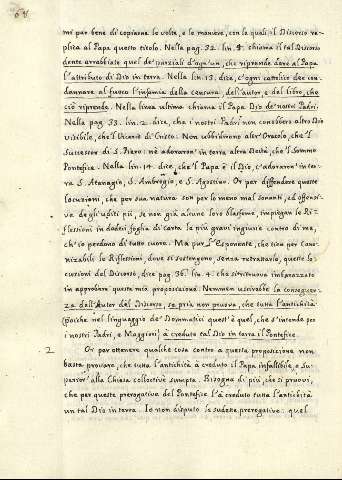 mi par bene di copiarne le volte, e le maniere, con le quali il Discorso re-
plica al Papa questo titolo. Nella pag. 32. lin. 9. chiama il tal Discorso
dente arrabbiato quel de' parziali d'ogn'un, che riprende dare al Papa
l'attributo di Dio in terra. Nella lin. 13. dice, c'ogni cattolico dee con-
dannare al fuoco l'infamia della censura dell'autor, e del libro, che
ciò riprende. Nella linea ultima chiama il Papa Dio de' nostri Padri.
Nella pag. 33. lin. 2. dice, che i nostri Padri non conobbero altro Dio
visibile, che'l Vicario di Cristo: Non ubbidirono altr'Oracolo, che'l
Successor di S. Piero: nè adorarono in terra altra Deità, che'l Sommo
Pontefice. Nella lin. 14. dice, che'l Papa è il Dio, c'adorarono in ter-
ra S. Atanagio, S. Ambrogio, e S. Agostino. Or per diffendere queste
locuzioni, che per sua natura son per lo meno mal sonanti, ed offensi-
ve degli uditi pii, se non già alcune loro blasfeme, impiegan le Ri-
flessioni in dodeci foglia di carta le più gravi ingiurie contro di me,
ch'io perdono di tutto cuore. Ma pur l'Esponente, che tien per Cano-
nizabile le Riflessioni, dove si sostengono, senza retrattarle, queste lo-
cuzioni del Discorso, dice pag. 36. lin. 4. che si ritruova imbarazzato
in approvare questa mia proposizione. Nemmen uscirebbe la conseguen-
za dall'Autor del Discorso, se pria non pruova, che tutta l'antichità
(poiche nel linguaggio de' Dommatici quest'è quel, che s'intende per
i nostri Padri, e Maggiori) à creduto tal Dio in terra il Pontefice.
2 Or per ottenere qualche cosa contro a questa proposizione non
basta provare, che tutta l'antichità à creduto il Papa infallibile, e Su-
perior alla Chiesa collective sumpta. Bisogna di più, che si pruovi,
che per queste prerogative del Pontefice l'à creduto tutta l'antichità
un tal Dio in terra. Io non disputo le sudette prerogative: quel